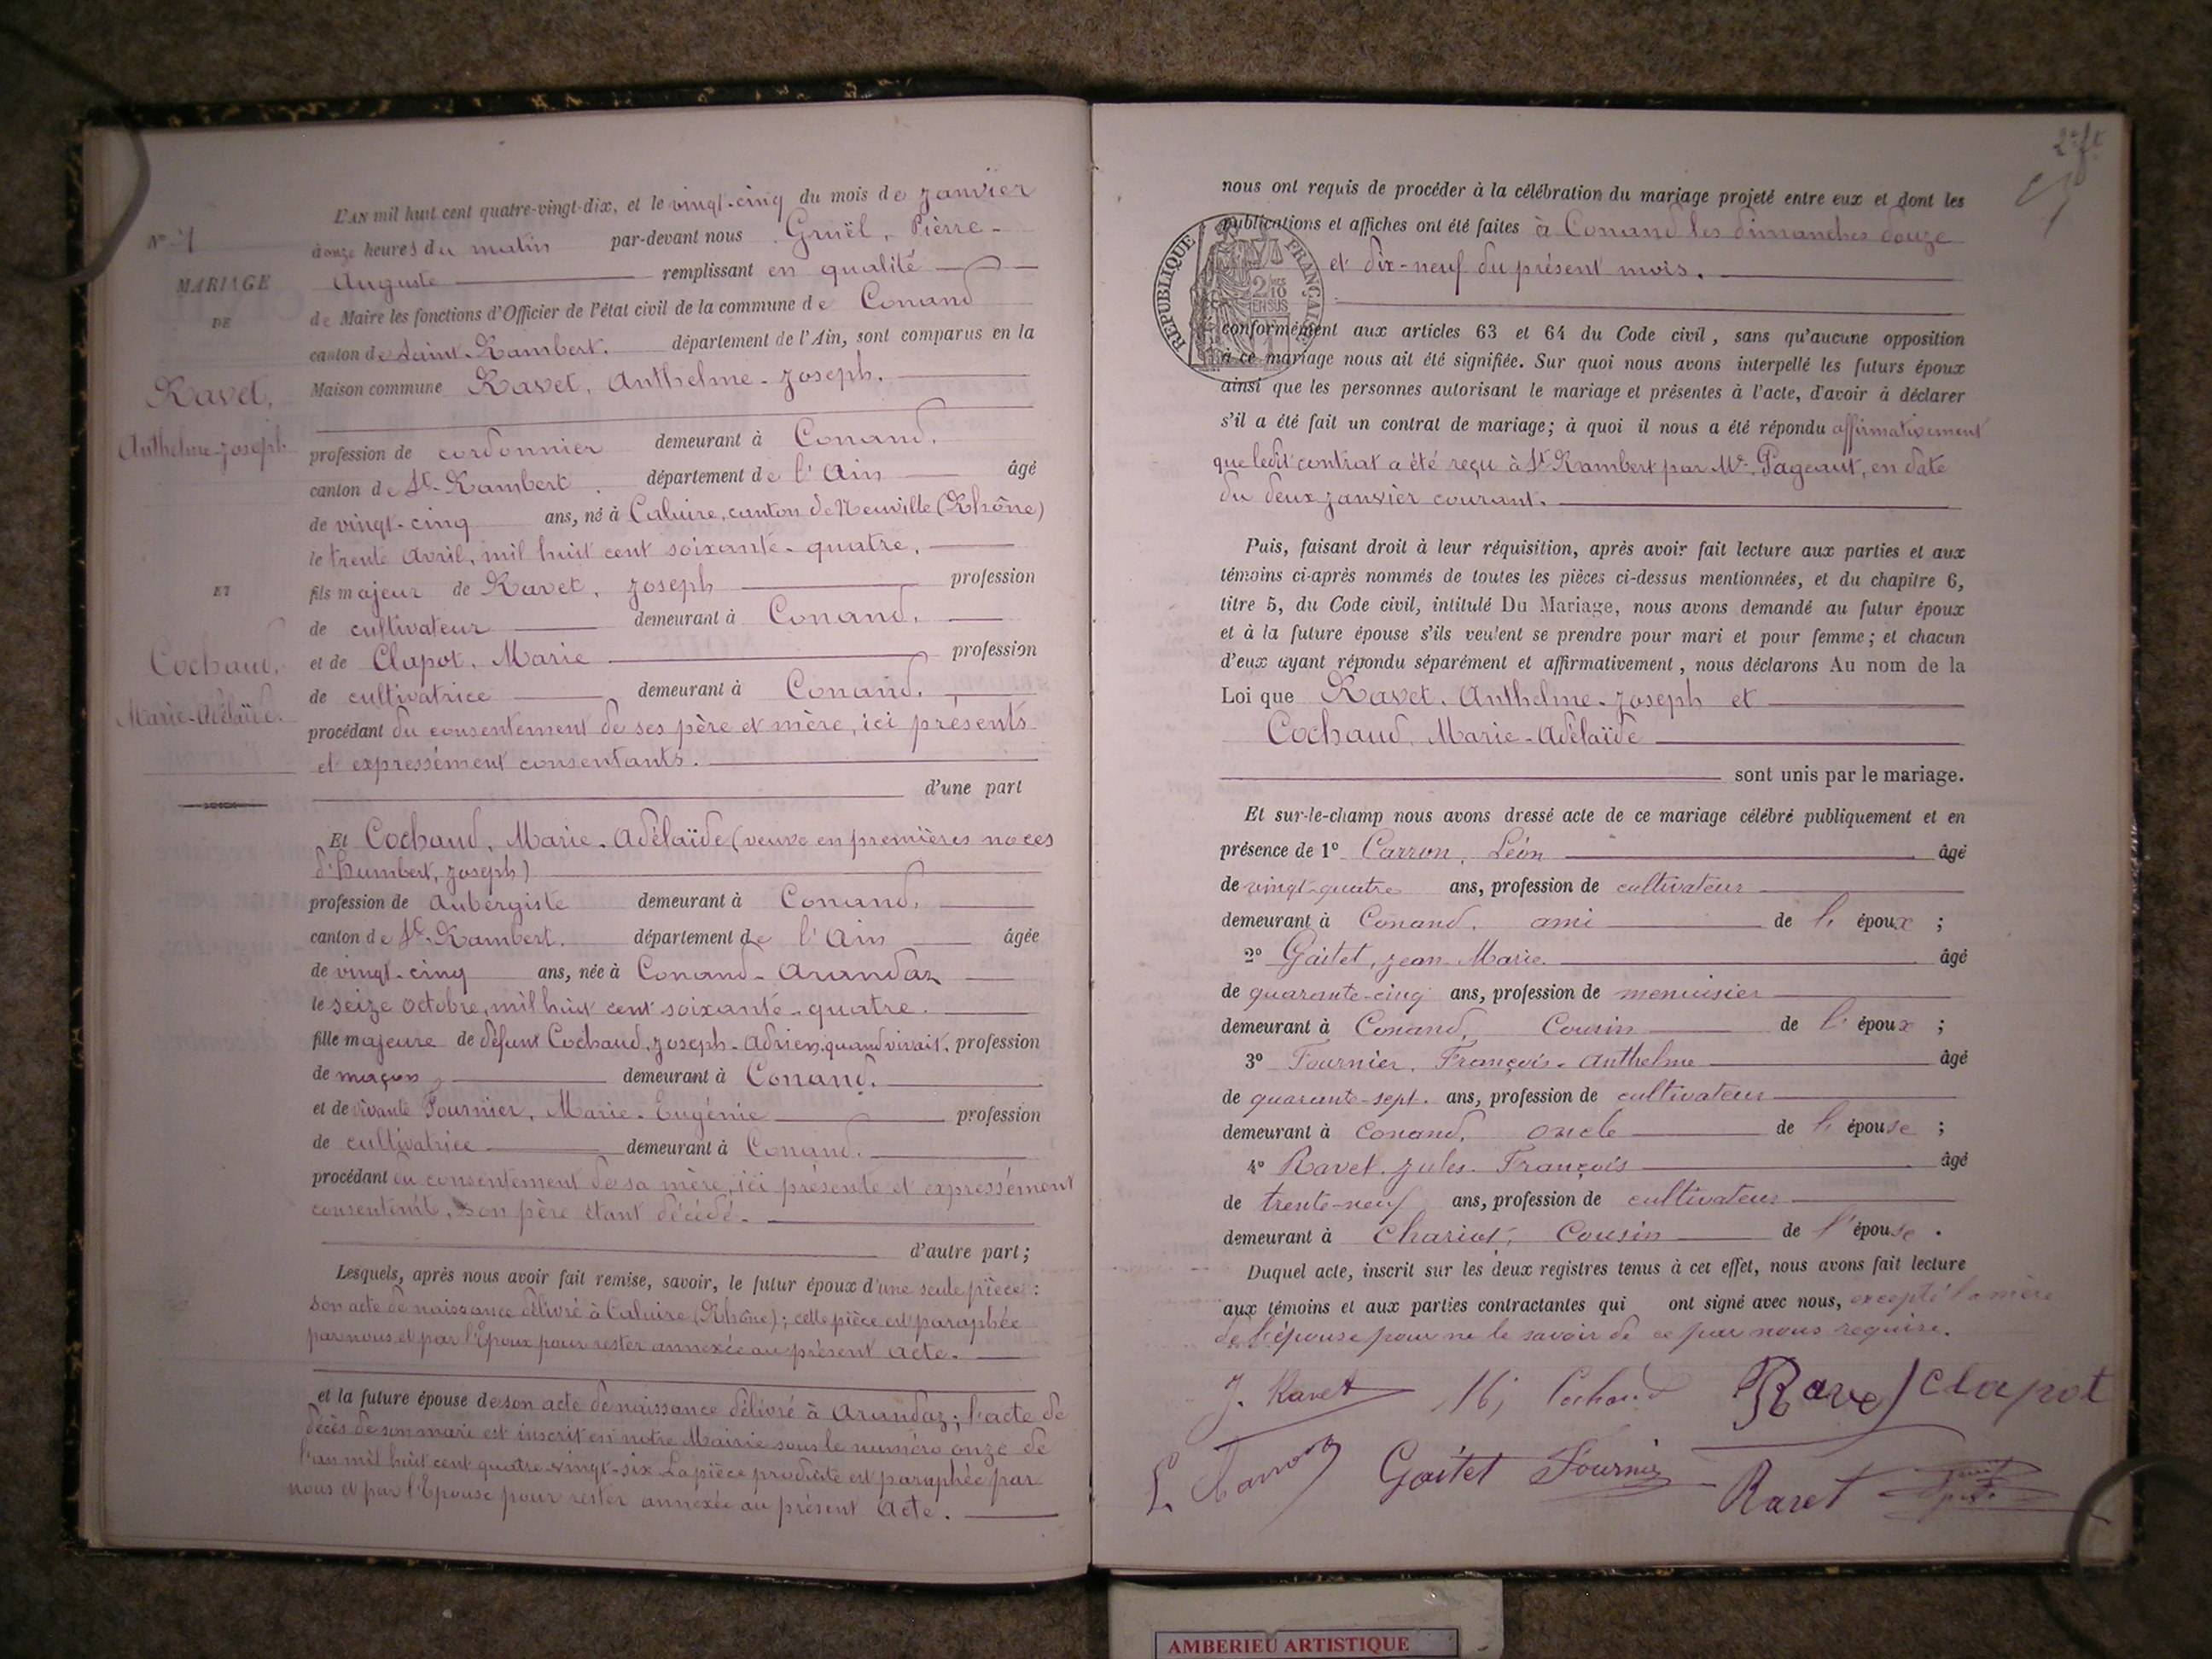 N° 1
MARIAGE
DE
Ravet,
Anthelme-Joseph
ET
Cochaud,
Marie-Adélaïde.
L'AN mil huit cent quatre-vingt-dix, et le vingt-cinq du mois de Janvier
à onze heures du matin par-devant nous Gruël, Pierre-
Auguste remplissant en qualité
de Maire les fonctions d'Officier de l'état civil de la commune de Conand
canton de Saint-Rambert. département de l'Ain, sont comparus en la
Maison commune Ravet, Anthelme-Joseph.
profession de cordonnier demeurant à Conand.
canton de St-Rambert. département de l'Ain âgé
de vingt-cinq ans, né à Caluire, canton de Neuville (Rhône)
le trente Avril, mil huit cent soixante-quatre.
fils majeur de Ravet, Joseph profession
de cultivateur demeurant à Conand.
et de Clapot, Marie profession
de cultivatrice demeurant à Conand.
procédant du consentement de ses père et mère, ici présents
et expressément consentants.
d'une part
Et Cochaud, Marie-Adélaïde (veuve en premières noces
d'Humbert, Joseph)
profession de Aubergiste demeurant à Conand.
canton de St-Rambert. département de l'Ain âgée
de vingt-cinq ans, née à Conand-Arandaz
le seize octobre, mil huit cent soixante-quatre.
fille majeure de défunt Cochaud, Joseph-Adrien, quand vivait, profession
de maçon, demeurant à Conand.
et de vivante Fournier, Marie-Eugénie profession
de cultivatrice demeurant à Conand.
procédant du consentement de sa mère, ici présente et expressément
consentante, son père étant décédé.
d'autre part;
Lesquels, après nous avoir fait remise, savoir, le futur époux d'une seule pièce :
son acte de naissance délivré à Caluire (Rhône); cette pièce est paraphée
par nous et par l'Epoux pour rester annexée au présent acte.
et la future épouse de son acte de naissance délivré à Arandaz; l'acte de
décès de son mari est inscrit en notre Mairie sous le numéro onze de
l'an mil huit cent quatre-vingt-six La pièce produite est paraphée par
nous et par l'Epouse pour rester annexée au présent Acte.
nous ont requis de procéder à la célébration du mariage projeté entre eux et dont les
publications et affiches ont été faites à Conand les dimanches douze
et dix-neuf du présent mois.
RÉPUBLIQUE FRANÇAISE
conformément aux articles 63 et 64 du Code civil, sans qu'aucune opposition
à ce mariage nous ait été signifiée. Sur quoi nous avons interpellé les futurs époux
ainsi que les personnes autorisant le mariage et présentes à l'acte, d'avoir à déclarer
s'il a été fait un contrat de mariage; à quoi il nous a été répondu affirmativement
que ledit contrat a été reçu à St Rambert par Me Pageaut, en date
du deux janvier courant.
Puis, faisant droit à leur réquisition, après avoir fait lecture aux parties et aux
témoins ci-après nommés de toutes les pièces ci-dessus mentionnées, et du chapitre 6,
titre 5, du Code civil, intitulé Du Mariage, nous avons demandé au futur époux
et à la future épouse s'ils veulent se prendre pour mari et pour femme; et chacun
d'eux ayant répondu séparément et affirmativement, nous déclarons Au nom de la
Loi que Ravet, Anthelme-Joseph et
Cochaud, Marie-Adélaïde
sont unis par le mariage.
Et sur-le-champ nous avons dressé acte de ce mariage célébré publiquement et en
présence de 1° Carron, Léon âgé
de vingt-quatre ans, profession de cultivateur
demeurant à Conand, ami de l' époux ;
2° Gaitet, Jean Marie. âgé
de quarante-cinq ans, profession de menuisier
demeurant à Conand, Cousin de l' époux ;
3° Fournier, François-Anthelme âgé
de quarante-sept. ans, profession de cultivateur
demeurant à Conand, oncle de l' épouse ;
4° Ravet Jules François âgé
de trente-neuf ans, profession de cultivateur
demeurant à Cousin de l'épouse .
Duquel acte, inscrit sur les deux registres tenus à cet effet, nous avons fait lecture
aux témoins et aux parties contractantes qui ont signé avec nous, excepté la mère
de l'épouse pour ne le savoir de ce par nous requise.
J. Ravet Cochaud Ravet Clapot
L. Carron Gaitet Fournier Ravet
AMBERIEU ARTISTIQUE